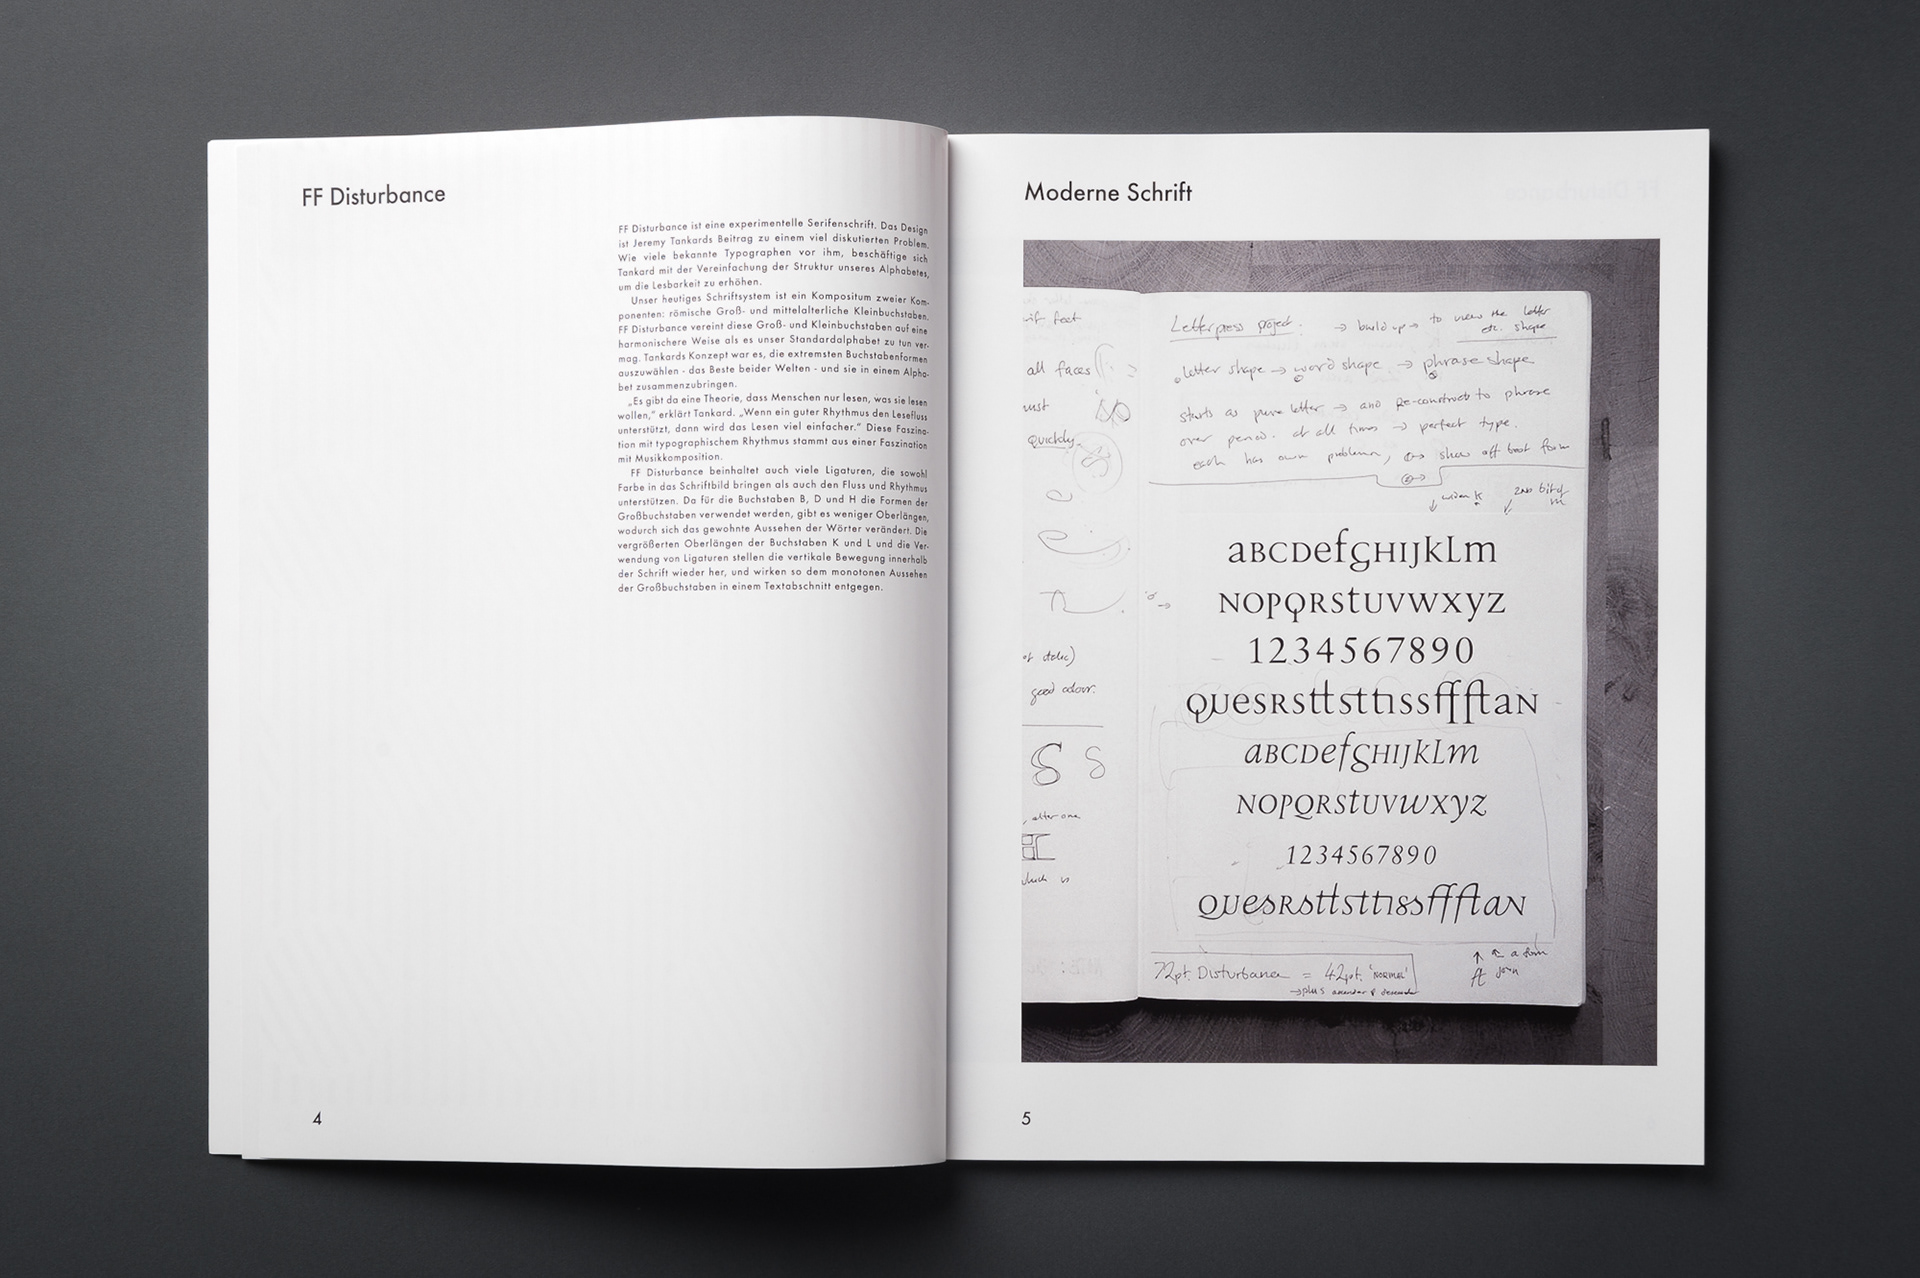 FF Disturbance
FF Disturbance ist eine experimentelle Serifenschrift. Das Design
ist Jeremy Tankards Beitrag zu einem viel diskutierten Problem.
Wie viele bekannte Typographen vor ihm, beschäftige sich
Tankard mit der Vereinfachung der Struktur unseres Alphabetes,
um die Lesbarkeit zu erhöhen.
Unser heutiges Schriftsystem ist ein Kompositum zweier Kom-
ponenten: römische Groß- und mittelalterliche Kleinbuchstaben.
FF Disturbance vereint diese Groß- und Kleinbuchstaben auf eine
harmonischere Weise als es unser Standardalphabet zu tun ver-
mag. Tankards Konzept war es, die extremsten Buchstabenformen
auszuwählen - das Beste beider Welten - und sie in einem Alpha-
bet zusammenzubringen.
„Es gibt da eine Theorie, dass Menschen nur lesen, was sie lesen
wollen,“ erklärt Tankard. „Wenn ein guter Rhythmus den Lesefluss
unterstützt, dann wird das Lesen viel einfacher.“ Diese Faszina-
tion mit typographischem Rhythmus stammt aus einer Faszination
mit Musikkomposition.
FF Disturbance beinhaltet auch viele Ligaturen, die sowohl
Farbe in das Schriftbild bringen als auch den Fluss und Rhythmus
unterstützen. Da für die Buchstaben B, D und H die Formen der
Großbuchstaben verwendet werden, gibt es weniger Oberlängen,
wodurch sich das gewohnte Aussehen der Wörter verändert. Die
vergrößerten Oberlängen der Buchstaben K und L und die Ver-
wendung von Ligaturen stellen die vertikale Bewegung innerhalb
der Schrift wieder her, und wirken so dem monotonen Aussehen
der Großbuchstaben in einem Textabschnitt entgegen.
4
Moderne Schrift
feet
all faces
quickly
good colour.
S S
, alter one
which is
Letterpress project. → build up → to view the letter
etc. shape
letter shape → word shape → phrase shape
starts as pure letter → and re-constructs to phrase
over period. at all times → perfect type.
each has own problem, show off best form
widen K
2nd bit of
m
aBCDefGHIJkLm
NOPQRstUVWXyz
1234567890
QUesRsttsttissffftaN
aBCDefGHIJkLm
NOPQRstUVWXyz
1234567890
QUesRsttsttissffftaN
72pt. Disturbance = 42pt. 'NORMAL'
→ plus ascender & descender
a form
join
5